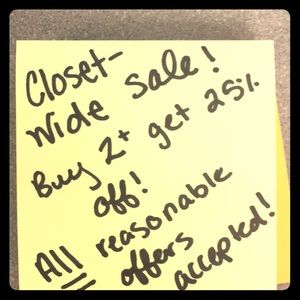 Closet-
wide sale!
Buy 2+ get 25%
off!
All reasonable
offers
accepted!